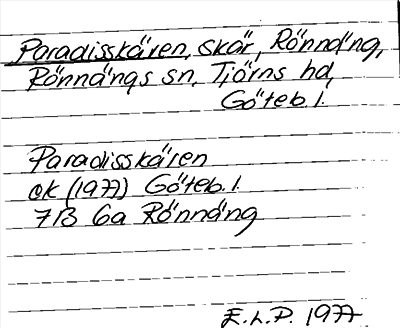 Paradisskären, skär, Rönnäng,
Rönnängs sn, Tjörns hd,
Göteb. l.
Paradisskären
ek (1977) Göteb. l.
7B 6a Rönnäng
E.L.P. 1977